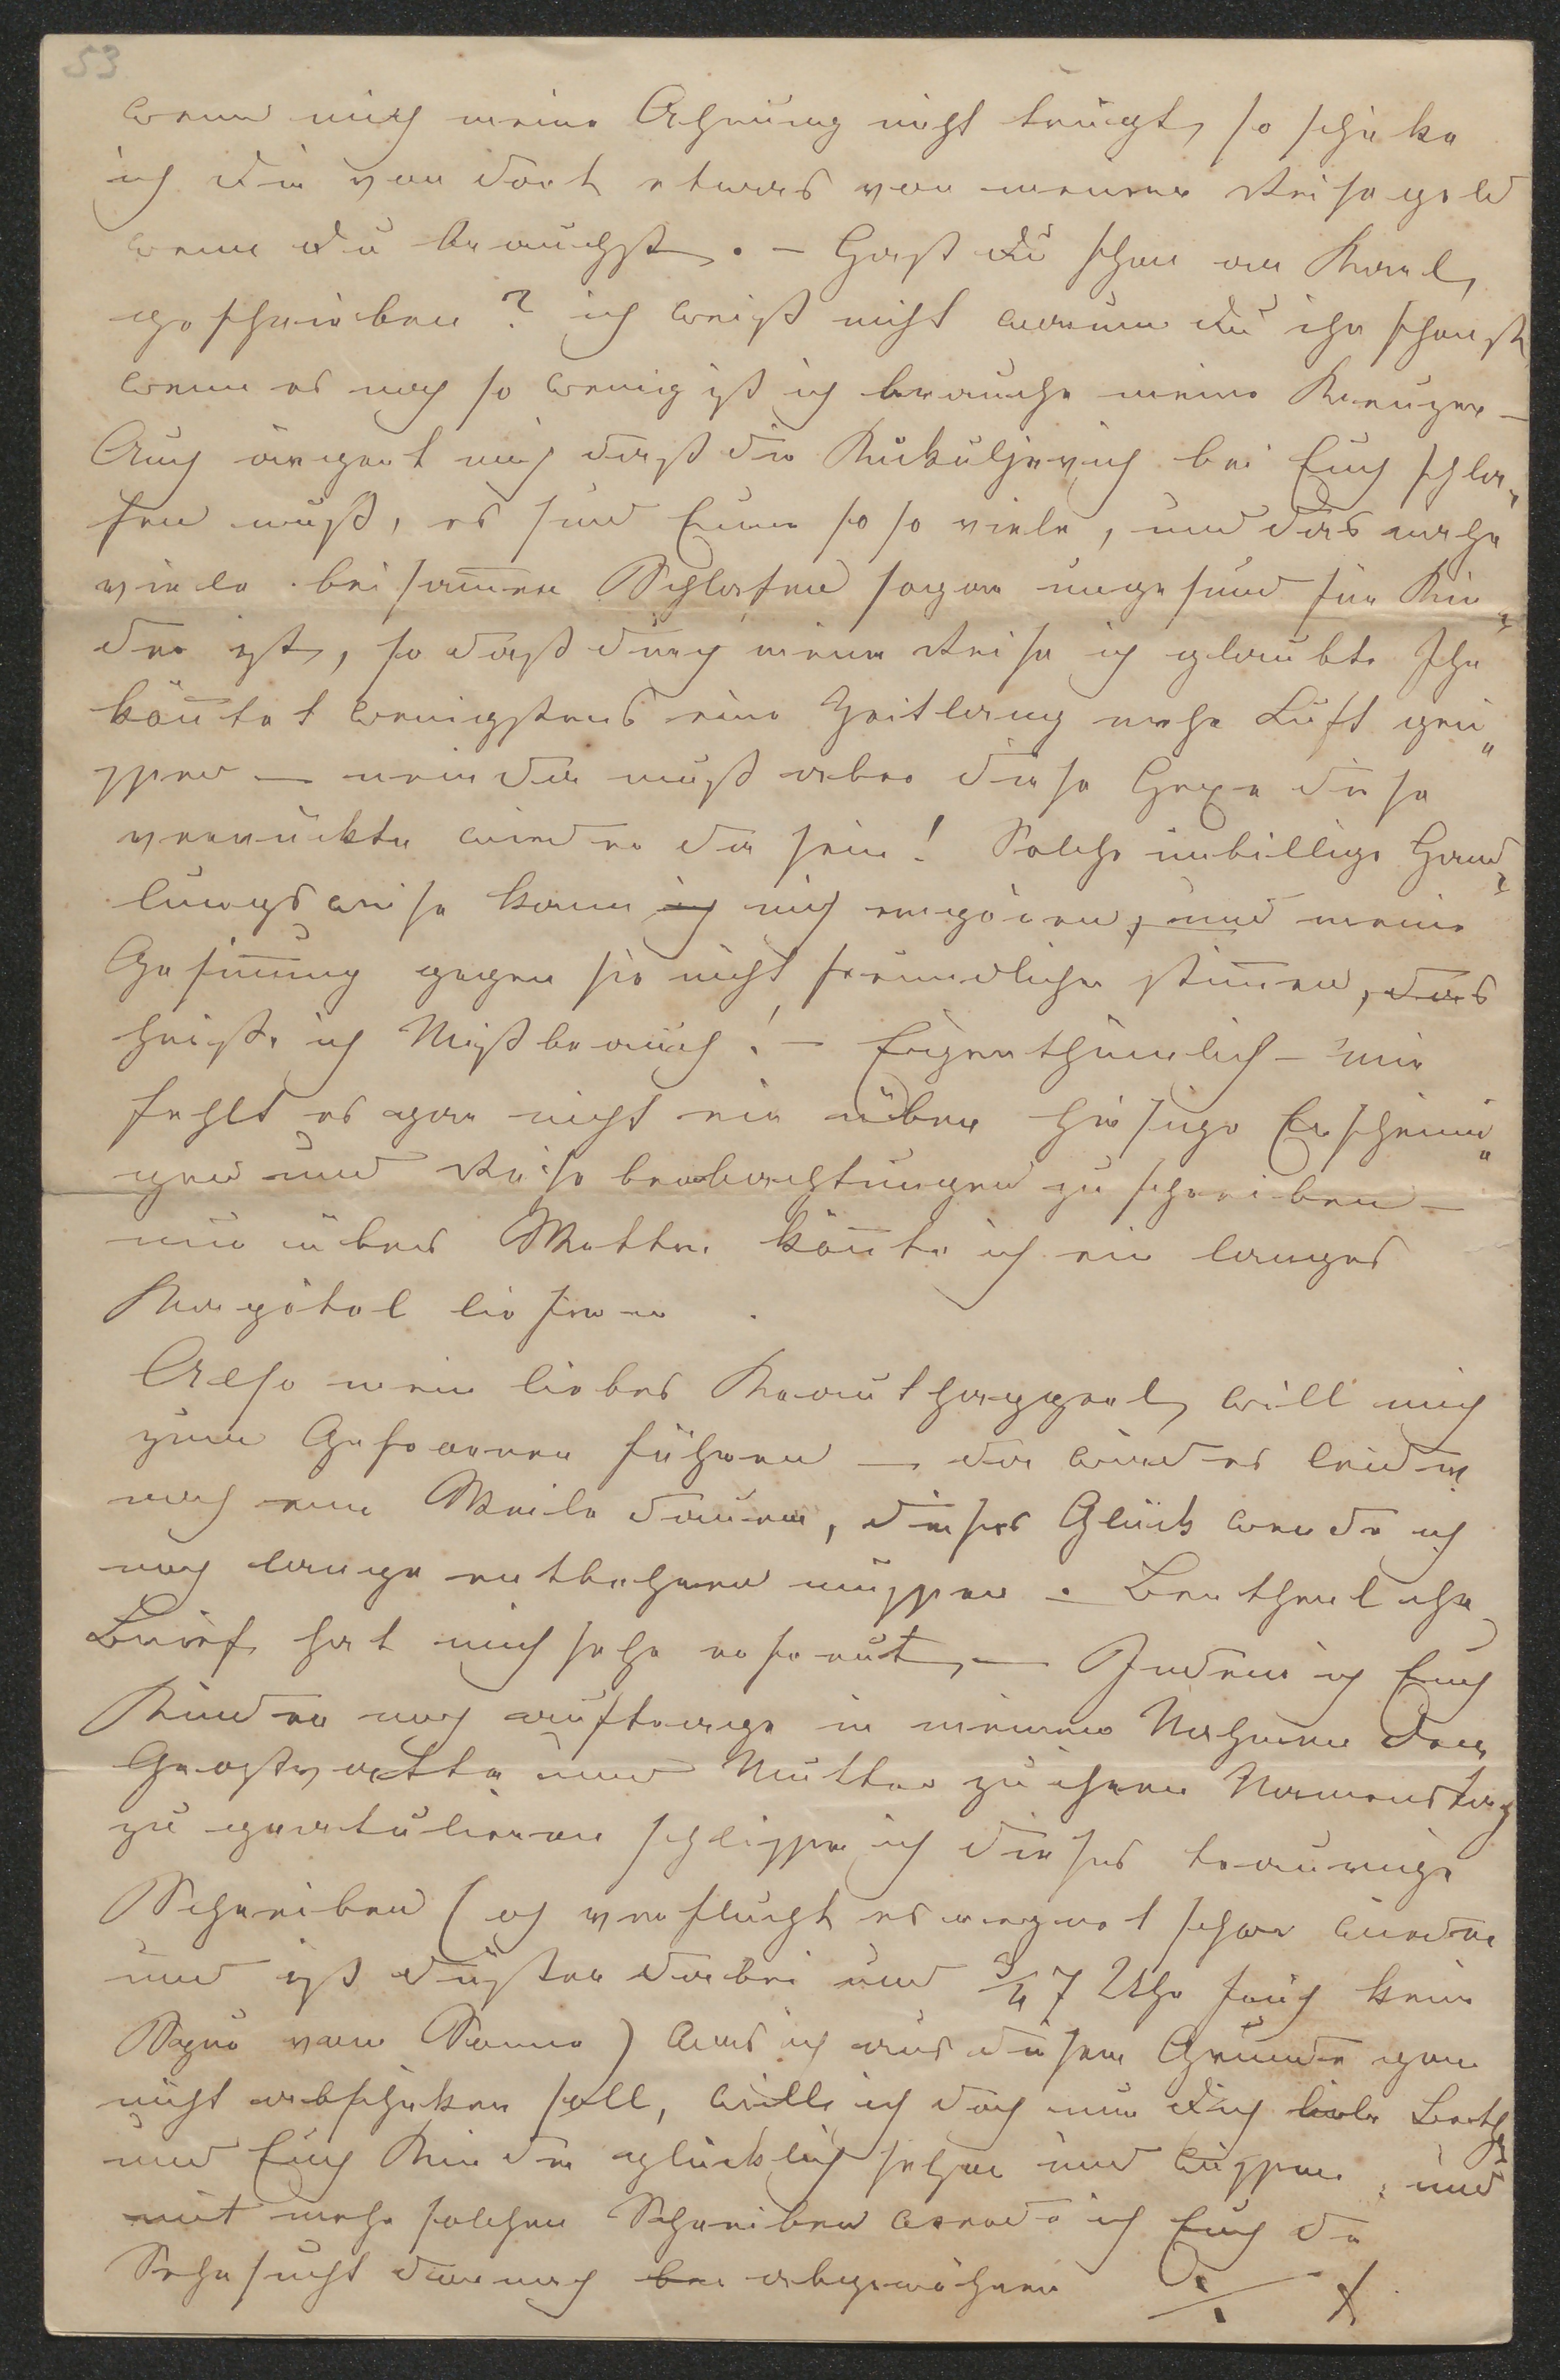 53
wenn mich meine Ahnung nicht trügt, so schike
ich dir von dort etwas von meinem Reisegeld
wenn du brauchst. – Hast du schon an Karl
geschrieben? ich weiß nicht warum du ihn schonst
wenn es noch so wenig ist ich brauche meine Kreuzer –
Auch ärgert mich daß die Kukuljevich bei Euch schla„
fen muß, es sind Eurer so so viele, und das mehr
viele beisamen Schlafen sogar ungesund für Kin„
der ist, so daß durch meine Reise ich glaubte Ihr
köntet wenigstens eine Zeitlang mehr Luft grei„
ssen – nein da muß aber diese Hexe diese
verrückte wieder da sein! Solche unbillige Hand„
lungsweise kann ich mich empören, und meine
Gesinung gegen sie nicht freundlicher stimen, das
heiße ich Mißbrauch! – Eigenthümlich – mir
fehlt es gar nicht ein über hiesige Erscheinu„
gen und Reise beobachtungen zu schreiben –
nur übers Wetter könte ich ein langes
Kapitel liefern.
Also mein liebes Krauthapperl, will mich
zum Gefrornen führen – da wird es leider
noch eine Weile dauern, dieses Glück werde ich
noch lange entbehren müssen. – Bertherl ihr
Brief hat mich sehr erfreut, – Indem ich Euch
Kinder noch auftrage in meinem Nahmen der
Großvatter und Mutter zu ihren Namenstag
zu gratulieren schlisse ich dieses traurige
Schreiben (och verflucht es regnet schon wieder
und ist düster dabei und 3/4 7 Uhr früh kein
Spur von Sonne) was ich aus diesem Grunde gar
nicht abschiken soll, will ich doch nur dich liebe Bertha
und Euch Kinder glücklich sehen und wissen, und
mit mehr solchen Schreiben werde ich Euch die
Sehnsucht darnach abgewöhnen ./.